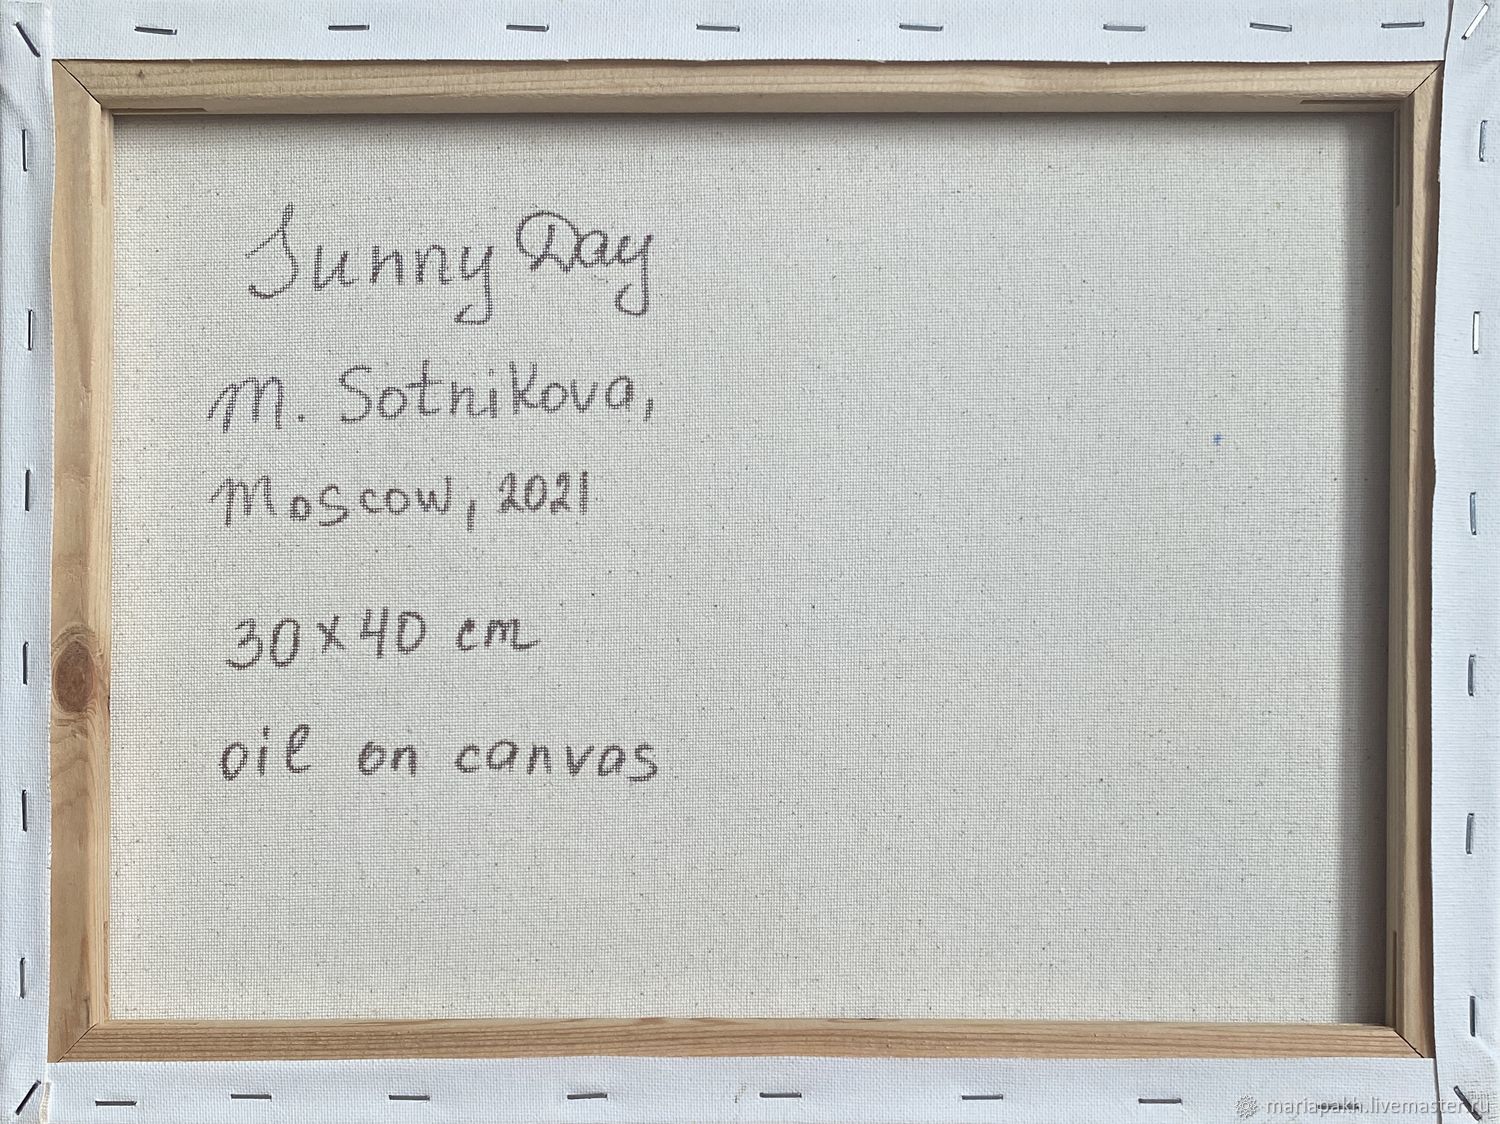 Sunny Day
M. Sotnikova,
Moscow, 2021
30x40 cm
oil on canvas
mariapakh.livemaster.ru